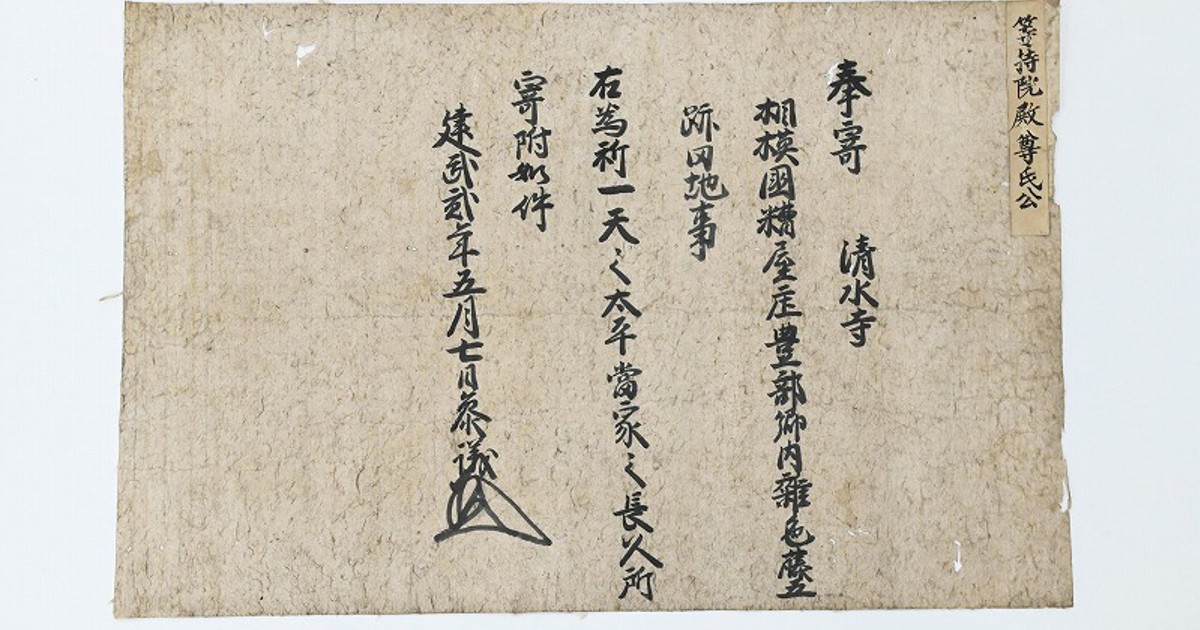 等持院殿尊氏公
奉寄 清水寺
相模國糟屋庄豊部郷内雜色藤五
跡田地事
右為祈一天之太平當家之長久所
寄附如件
建武貳年五月七日参議